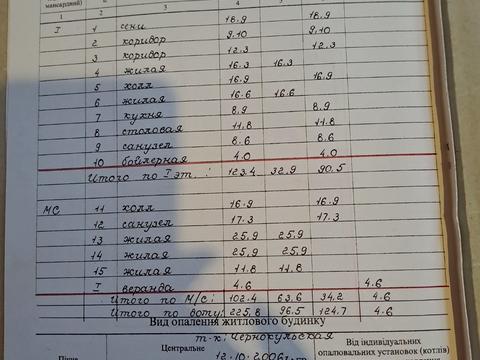 мансардний)
1 2 3 4 5 6
I 1 сени 18.9 18.9
2 коридор 9.10 9.10
3 коридор 12.3 12.3
4 жилая 16.3 16.3
5 холл 16.9 16.9
6 жилая 16.6 16.6
7 кухня 8.9 8.9
8 столовая 11.8 11.8
9 санузел 8.6 8.6
10 бойлерная 4.0 4.0
Итого по I эт. : 123.4 32.9 90.5
МС 11 холл 16.9 16.9
12 санузел 17.3 17.3
13 жилая 25.9 25.9
14 жилая 25.9 25.9
15 жилая 11.8 11.8
I веранда 4.6 4.6
Итого по М/с: 102.4 63.6 34.2 4.6
Итого по 225.8 96.5 124.7 4.6
Вид опалення житлового будинку
Центральне
Від індивідуальних
опалювальних установок (котлів)
Пічне
12.10.2006г.